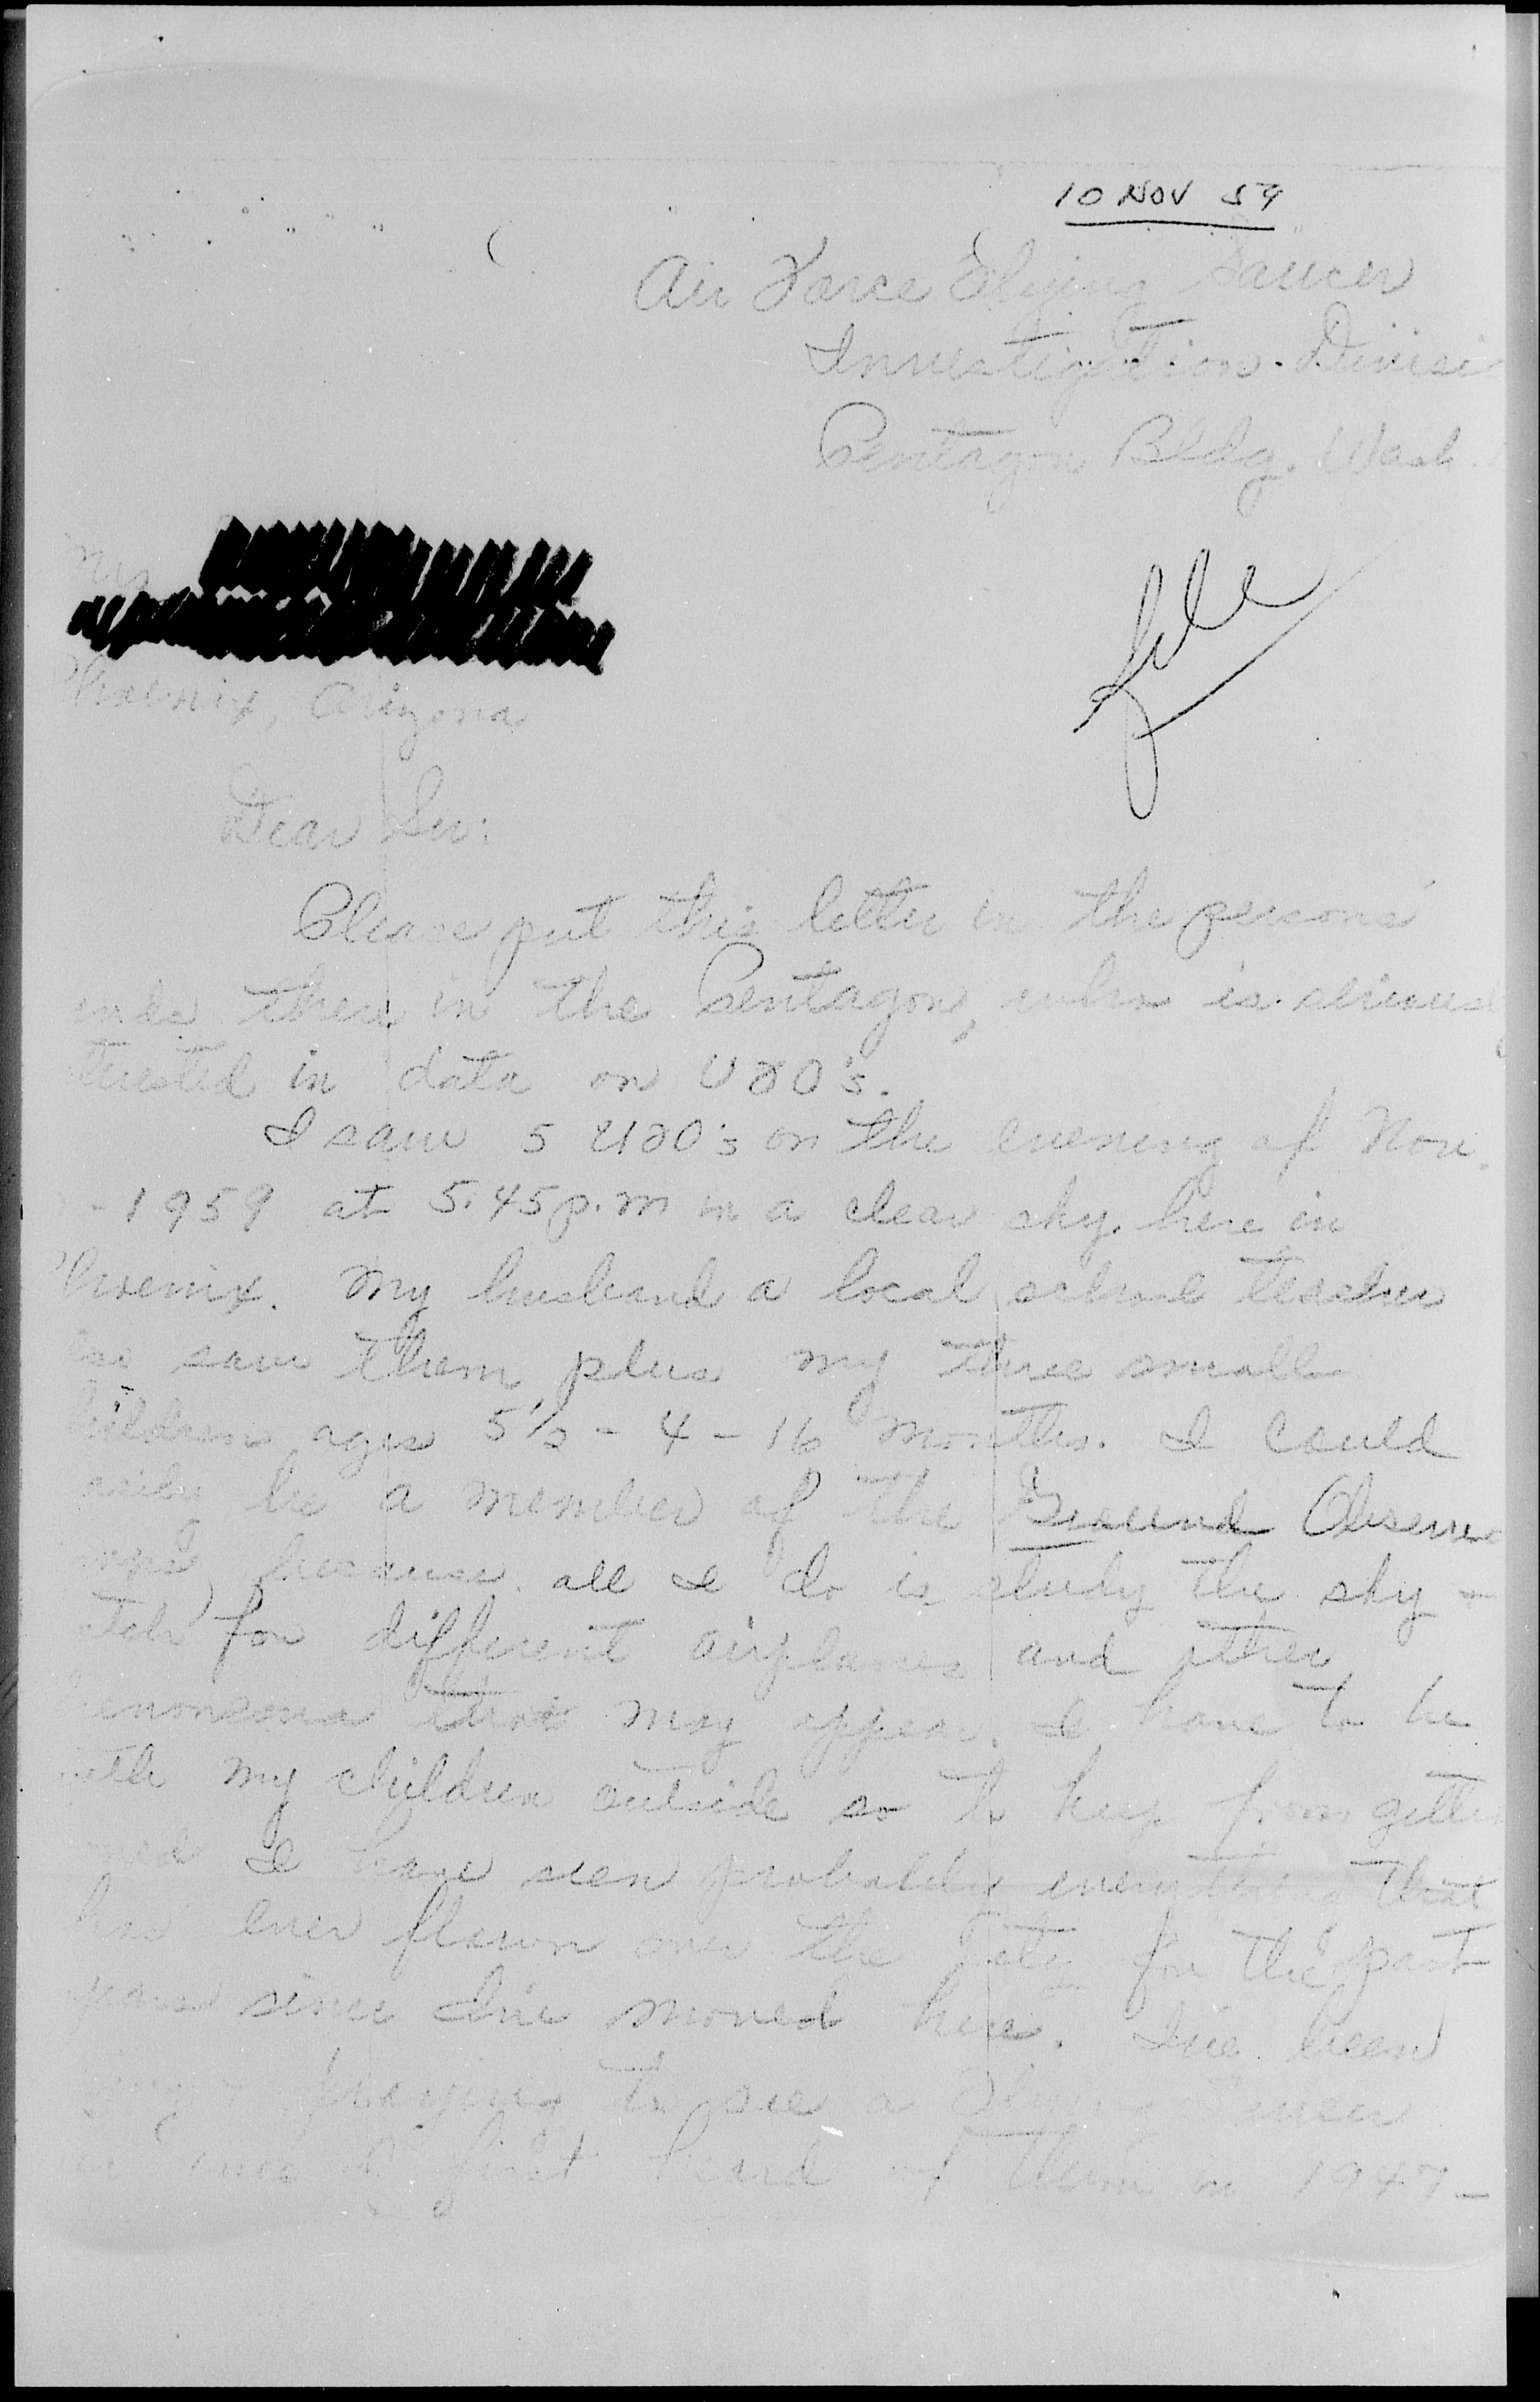 10 NOV 59
Air Force Flying Saucer
Investigation Divisi
Pentagon Bldg. Wash.
Mrs
file
Phoenix, Arizona
Dear Sir:
Please put this letter in the persons'
ands there in the Pentagon, who is serious
terested in data on UFO's.
I saw 5 UFO's on the evening of Nov.
- 1959 at 5:45 p.m in a clear sky here in
Phoenix. My husband a local school teacher
also saw them plus my three small
children ages 5½ - 4 - 16 months. I could
easily be a member of the Ground Observe
orps because all I do is study the sky -
atch for different airplanes and other
henomena that may appear. I have to be
with my children outside so to keep from gettin
I have seen probably everything that
has ever flown over the city for the past
years since I've moved here. I've been
praying to see a Flying Saucer
ever since I first heard of them in 1947 -